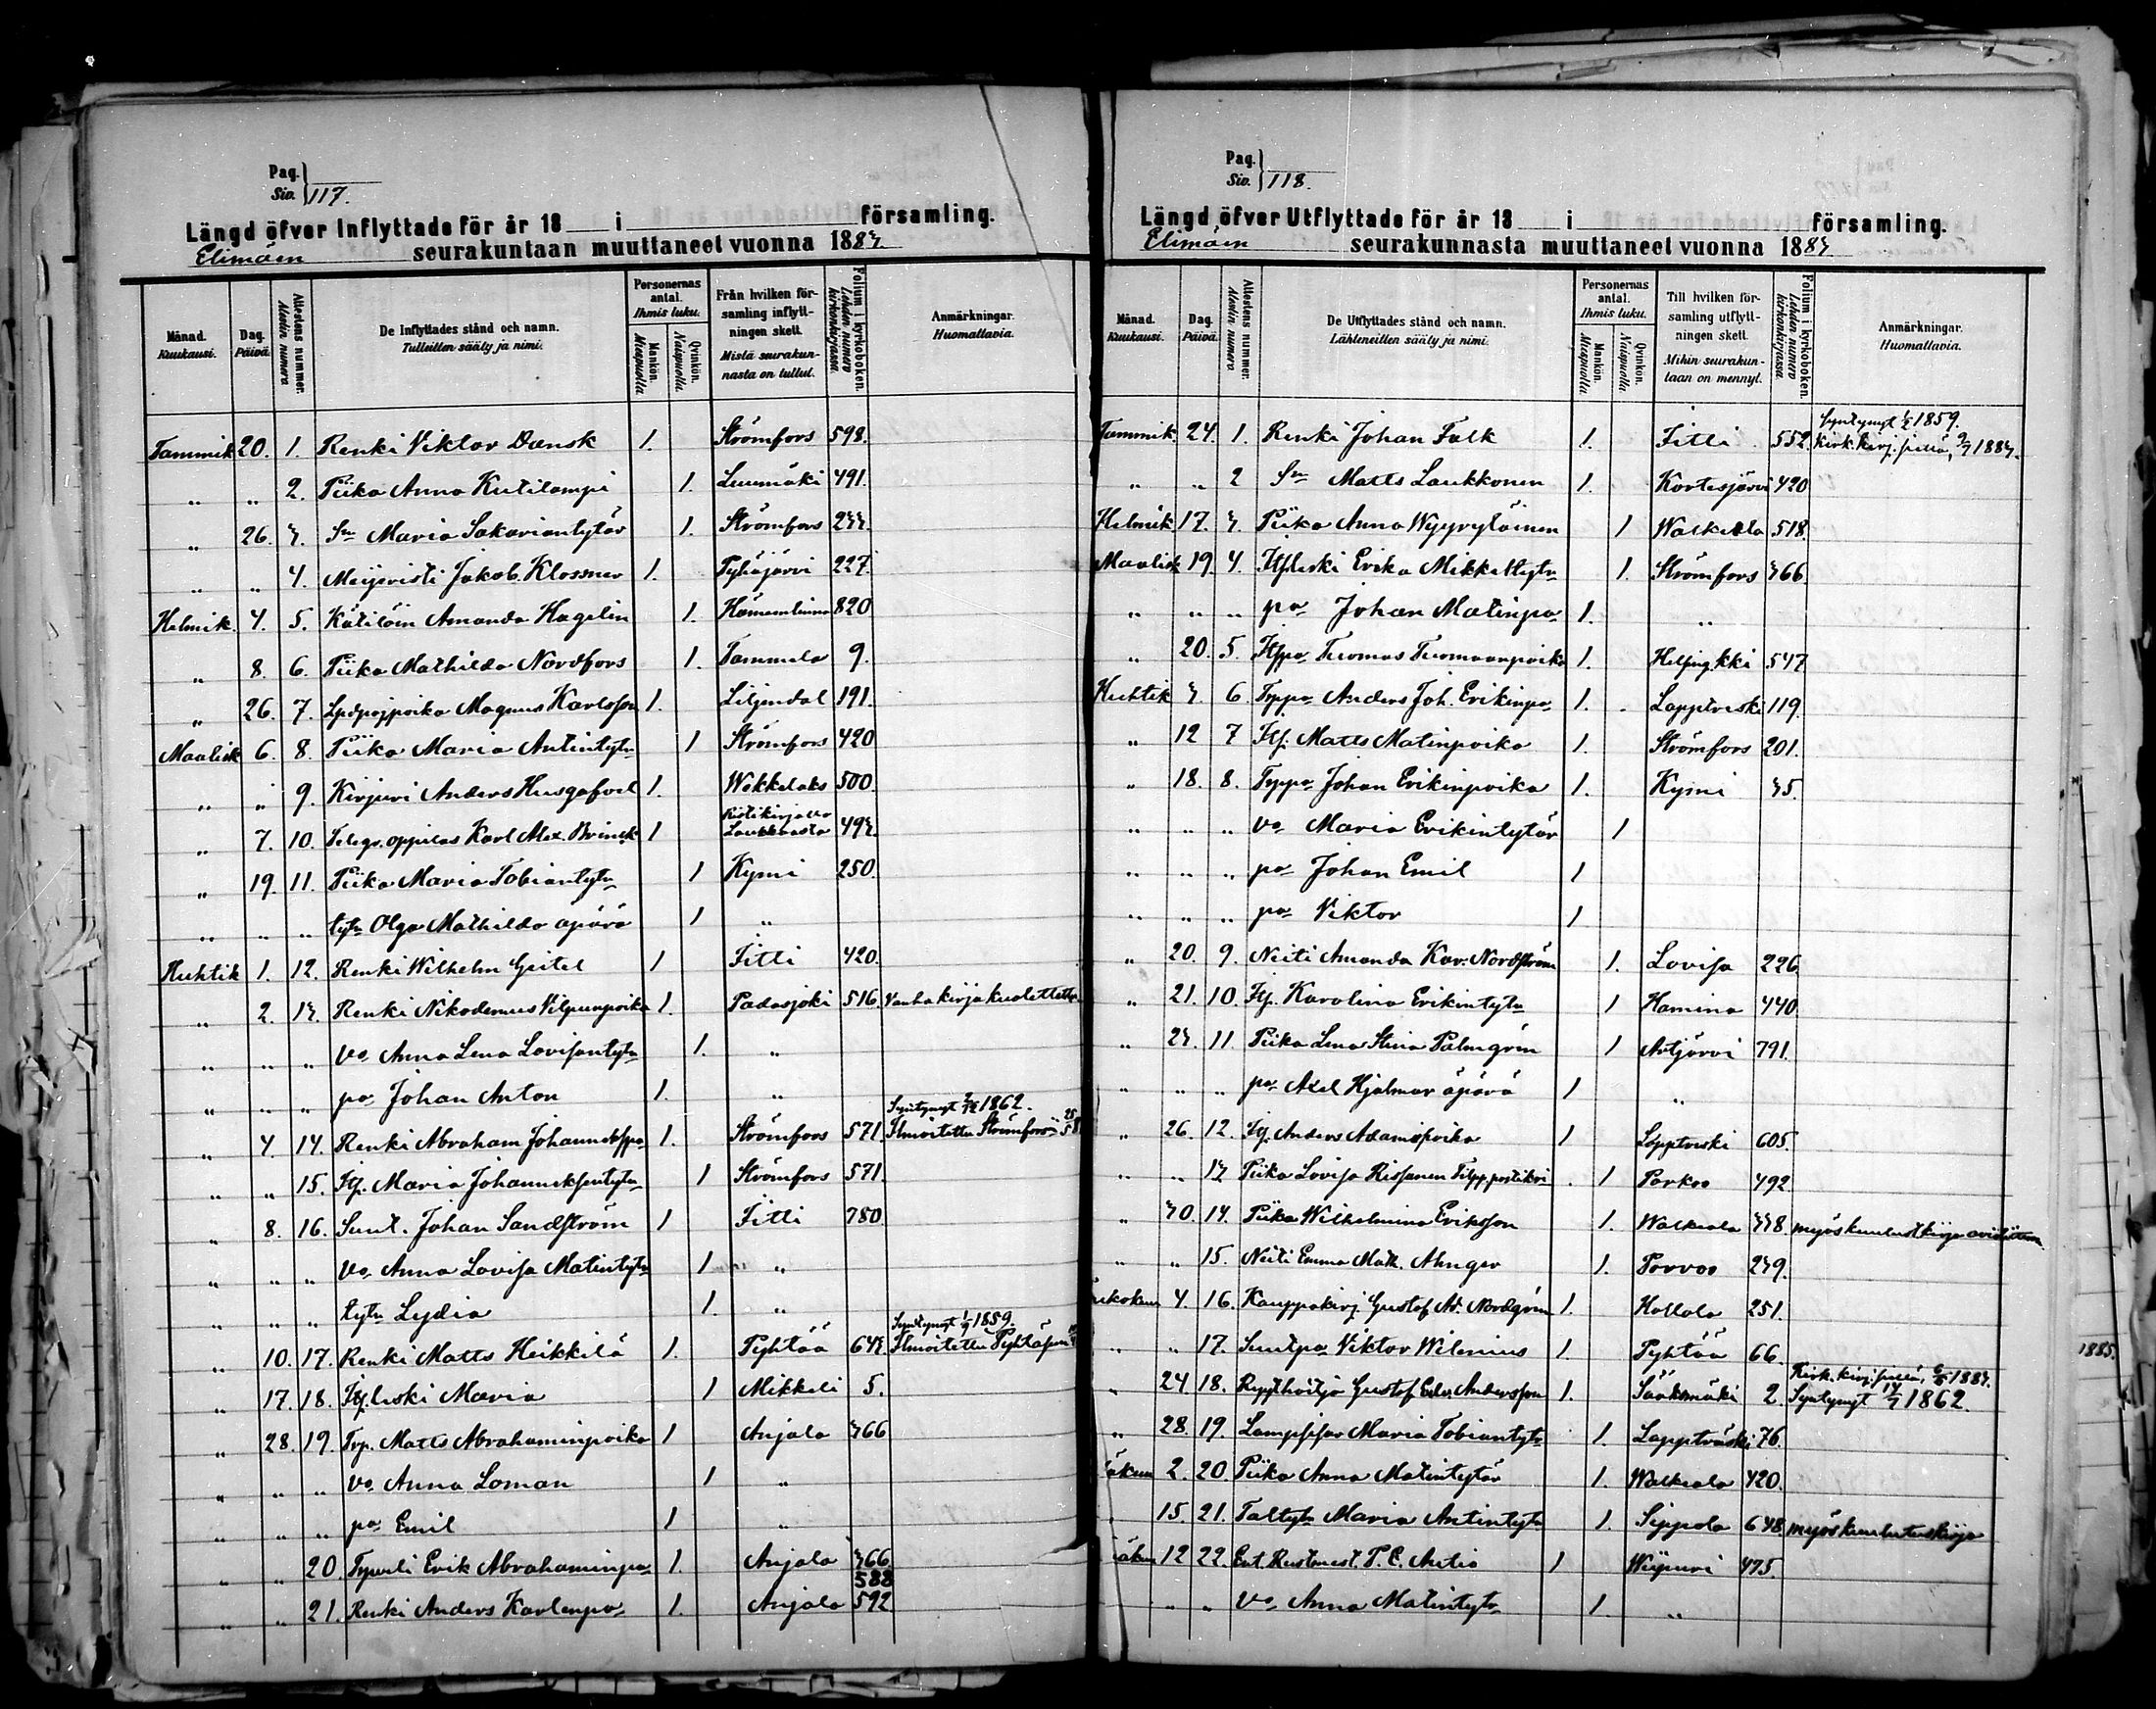 Pag.
Siv. 117.
Längd öfver Inflyttade för år 18 i församling.
Elimäen seurakuntaan muuttaneet vuonna 1883.
Månad. Kuukausi.
Dag. Päivä.
Attestens nummer. Alestin numero.
De Inflyttades stånd och namn. Tulleitten sääty ja nimi.
Personernas antal. Ihmis luku.
Mankön. Miespuolta
Qvinkön. Naispuolta
Från hvilken församling inflyttningen skett. Mistä seurakunnasta on tullut.
Folium i kyrkoboken. Lehden numero kirkonkirjassa.
Anmärkningar. Huomattavia.
Tammik 20. 1. Renki Viktor Dansk 1. Strömfors 598.
„ „ 2. Piika Anna Kutilampi 1. Luumäki 491.
„ 26. 3. Sn Maria Sakariantytär 1. Strömfors 233.
„ „ 4. Meijeristi Jakob Klossner 1. Pyhäjärvi 227.
Helmik. 4. 5. Kätilöin Amanda Hagelin 1. Hämeenlinna 820
„ 8. 6. Piika Mathilda Nordfors 1. Tammela 9.
„ 26. 7. Magnus Karlsson 1. Liljendal 191.
Maalisk 6. 8. Piika Maria Antintytr 1 Strömfors 420
„ „ 9. Kirjuri Anders Husgafvel 1. Wekkelaks 500.
„ 7. 10. Telegr. oppilas Karl Alex. Brinck 1 Ristikirjalla Laukkaasta 493.
„ 19. 11. Piika Maria Tobiantytr 1 Kymi 250.
„ „ „ tytr Olga Mathilda äpärä 1 „
Huhtik 1. 12. Renki Wilhelm Gritel 1 Iitti 420.
„ 2. 13. Renki Nikodemus Vilpunpoika 1. Padasjoki 516. Vanha kirja kuoletettu
„ „ „ vo Anna Lena Lovisantytr 1. „
„ „ „ poa Johan Anton 1. „
Syntynyt 1862.
„ 4. 14. Renki Abraham Johanneksspoa 1. Strömfors 571 Ilmoitettu Strömforsiin
„ „ 15. Itj. Maria Johanneksentytr 1 Strömfors 571.
„ 8. 16. Sunt. Johan Sandström 1 Iitti 780.
„ „ „ vo Anna Lovisa Matintytr 1 „
„ „ „ tytr Lydia 1. „
Syntynyt 1859.
„ 10. 17. Renki Matts Heikkilä 1. Pyhtää 643. Ilmoitettu Pyhtääsen
„ 17. 18. Itj. leski Maria 1 Mikkeli 5.
„ 28. 19. Trp. Matts Abrahaminpoika 1 Anjala 366
„ „ „ vo Anna Loman 1 „
„ „ „ poa Emil 1 „
„ „ 20. Erik Abrahaminpoa 1. Anjala 366 588
„ „ 21. Renki Anders Karlenpoa 1. Anjala 592
Pag.
Siv. 118.
Längd öfver Utflyttade för år 18 i församling.
Elimäen seurakunnasta muuttaneet vuonna 1883.
Månad. Kuukausi.
Dag. Päivä.
Attestens nummer. Alestin numero.
De Utflyttades stånd och namn. Lähteneitten sääty ja nimi.
Personernas antal. Ihmis luku.
Mankön. Miespuolta
Qvinkön. Naispuolta
Till hvilken församling utflyttningen skett. Mihin seurakuntaan on mennyt.
Folium i kyrkoboken. Lehden numero kirkonkirjassa.
Anmärkningar. Huomattavia.
Syntynyt 1859.
Tammik. 24. 1. Renki Johan Falk 1. Iitti 552. Kirk. kirj. siellä, 1883.
„ „ 2 Sn Matts Laukkonen 1. Kortesjärvi 420
Helmik. 17. 3. Piika Anna Wyyryläinen 1 Walkeala 518.
Maalisk 19. 4. Itsleski Erika Mikkeltytr 1. Strömfors 366.
„ „ „ poa Johan Matinpoa 1. „
„ 20. 5. Itspoa Tuomas Tuomaanpoika 1. Helsing.kki 547
Huhtik 3. 6 Trppoa Anders Joh. Erikinpoa 1. Lapptreski 119.
„ 12 7 Itj. Matts Matinpoika 1. Strömfors 201.
„ 18. 8. Trppoa Johan Erikinpoika 1. Kymi 35.
„ „ „ vo Maria Erikintytär 1
„ „ „ poa Johan Emil 1
„ „ „ poa Viktor 1
„ 20. 9. Neiti Amanda Kar. Nordström 1. Lovisa 226.
„ 21. 10. Itj. Karolina Erikintytr 1 Hamina 440.
„ 23. 11. Piika Lena Stina Palmgrén 1 Artjärvi 791.
„ „ „ poa Axel Hjalmar äpärä 1 „
„ 26. 12. Itj. Anders Adaminpoika 1 Lapptreski 605.
„ „ 13 Piika Lovisa Rissanen 1 Porkoo 492
„ 30. 14. Piika Wilhelmina Eriksson 1. Walkeala 338. myös kuulutkirja
„ „ 15. Neiti Emma Math. Ahnger 1. Porvoo 239.
Toukokuu 4. 16. Kauppakirj. Gustaf Ad. Nordgrén 1. Hollola 251.
„ „ 17. Suutpoa Viktor Wilenius 1. Pyhtää 66.
Kirk. kirj. siellä, 1883.
„ 24 18. Gustaf Edv. Andersson 1. Sääksmäki 2. Syntynyt 1862.
„ 28. 19. Maria Tobiantytr 1. Lappträski 76.
2. 20 Piika Anna Matintytär 1. Walkeala 420.
15. 21. Taltytr Maria Antintytr 1. Sippola 648. myös kuulutuskirja
12 22. Ent. Rustmest. P. E. Antio 1 Wiipuri 475.
„ „ vo Anna Matintytr 1. „
1885.